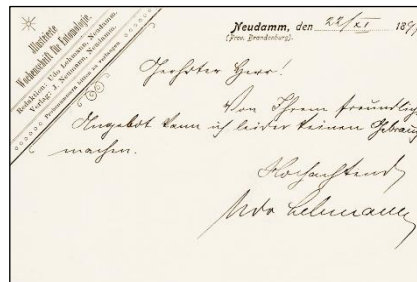 Illustrierte
Wochenschrift für Entomologie.
Redaktion: Udo Lehmann, Neudamm.
Verlag: J. Neumann, Neudamm.
Probenummern bitten zu verlangen
Neudamm, den 22/XI 189
(Prov. Brandenburg).
Geehrter Herr!
Von Ihrem freundlich
Angebot kann ich leider keinen Gebrauch
machen.
Hochachtend
Udo Lehmann